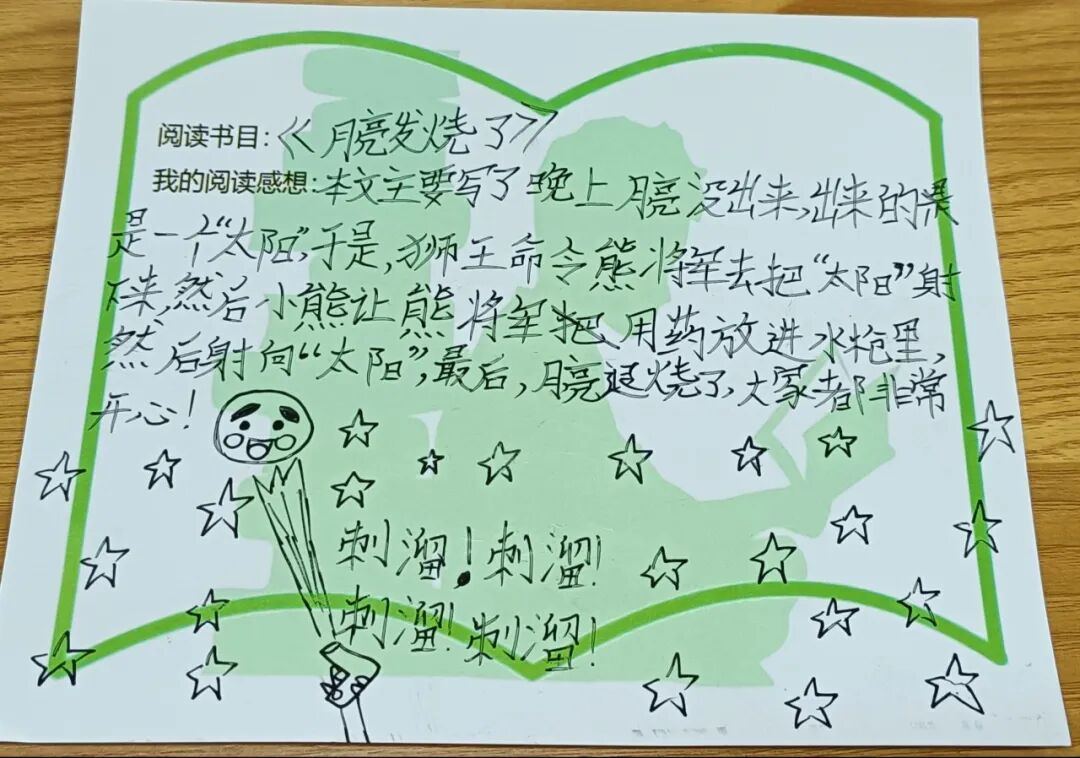 阅读书目:《月亮发烧了》
我的阅读感想:本文主要写了晚上月亮没出来,出来的
是一个“太阳”,于是,狮王命令熊将军去把“太阳”射
下来,然后小熊让熊将军把用药放进水枪里,
然后射向“太阳”,最后,月亮退烧了,大家都非常
开心!
刺溜!刺溜!
刺溜!刺溜!